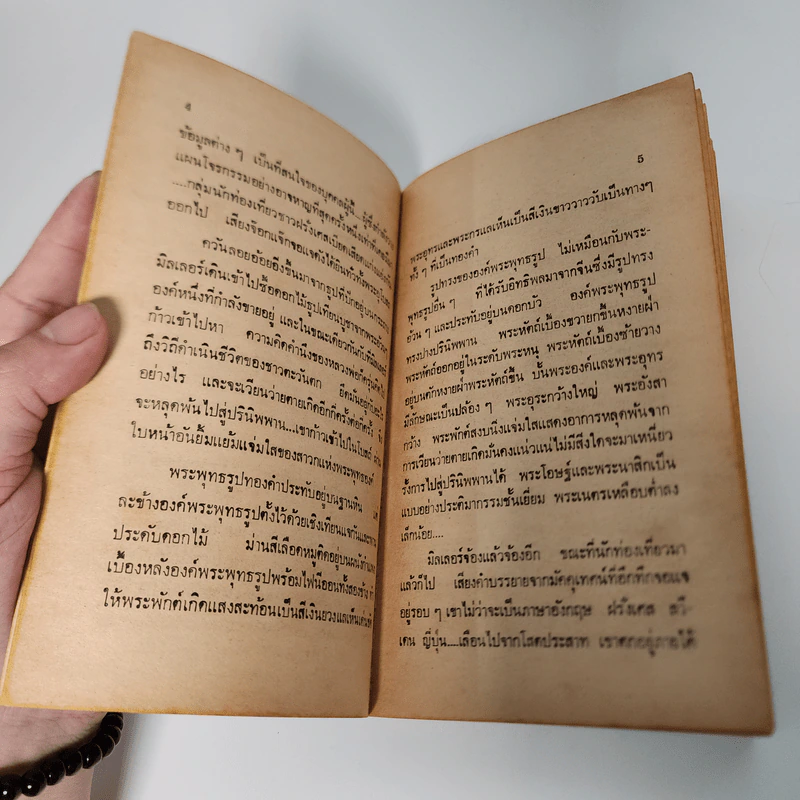 4
ข้อมูลต่าง ๆ เป็นที่สนใจของบุคคลผู้นี้....ผู้ซึ่งกำลัง
แผนโจรกรรมอย่างอาจหาญที่สุดครั้งหนึ่งเท่าที่เคย
....กลุ่มนักท่องเที่ยวชาวฝรั่งเศสเบียดเสียด
ออกไป เสียงจ๊อกแจ๊กจอแจดังได้ยินทั่วทั้งพระ
ควันลอยอ้อยอิ่งขึ้นมาจากธูปที่ปักอยู่บน
มิลเลอร์เดินเข้าไปซื้อดอกไม้ธูปเทียนบูชาจาก
องค์หนึ่งที่กำลังขายอยู่ และในขณะเดียวกัน
ก้าวเข้าไปหา ความคิดคำนึงของหลวงพ่อก็
ถึงวิถีดำเนินชีวิตของชาวตะวันตก ยึดมั่นอยู่กับ
อย่างไร และจะเวียนว่ายตายเกิดอีกกี่ครั้งต่อกี่ครั้ง จึง
จะหลุดพ้นไปสู่ปรินิพพาน...เขาก้าวเข้าไปในโบสถ์ ผ่าน
ใบหน้าอันยิ้มแย้มแจ่มใสของสาวกแห่งพระพุทธองค์
พระพุทธรูปทองคำประทับอยู่บนฐานหิน
ละข้างองค์พระพุทธรูปตั้งไว้ด้วยเชิงเทียนแจกันและ
ประดับดอกไม้ ม่านสีเลือดหมูติดอยู่บนผนัง
เบื้องหลังองค์พระพุทธรูปพร้อมไฟนีออนทั้งสองข้าง ทำ
ให้พระพักต์เกิดแสงสะท้อนเป็นสีเงินยวงแลเห็นเด่นชัด
5
พระอุทรและพระกรแลเห็นเป็นสีเงินขาววาววับเป็นทางๆ
ทั้ง ๆ ที่เป็นทองคำ
รูปทรงขององค์พระพุทธรูป ไม่เหมือนกับพระ-
พุทธรูปอื่น ๆ ที่ได้รับอิทธิพลมาจากจีนซึ่งมีรูปทรง
อ้วน ๆ และประทับอยู่บนดอกบัว องค์พระพุทธรูป
ทรงปางปรินิพพาน พระหัตถ์เบื้องขวายกขึ้นหงายฝ่า
พระหัตถ์ออกอยู่ในระดับพระหนุ พระหัตถ์เบื้องซ้ายวาง
อยู่บนตักหงายฝ่าพระหัตถ์ขึ้น บั้นพระองค์และพระอุทร
มีลักษณะเป็นปล้อง ๆ พระอุระกว้างใหญ่ พระอังสา
กว้าง พระพักต์สงบนิ่งแจ่มใสแสดงอาการหลุดพ้นจาก
การเวียนว่ายตายเกิดมั่นคงแน่วแน่ไม่มีสิ่งใดจะมาเหนี่ยว
รั้งการไปสู่ปรินิพพานได้ พระโอษฐ์และพระนาสิกเป็น
แบบอย่างประติมากรรมชั้นเยี่ยม พระเนตรเหลือบต่ำลง
เล็กน้อย....
มิลเลอร์จ้องแล้วจ้องอีก ขณะที่นักท่องเที่ยวมา
แล้วก็ไป เสียงคำบรรยายจากมัคคุเทศก์ที่อึกทึกจอแจ
อยู่รอบ ๆ เขาไม่ว่าจะเป็นภาษาอังกฤษ ฝรั่งเศส สวี-
เดน ญี่ปุ่น....เลือนไปจากโสตประสาท เขาตกอยู่ภายใต้